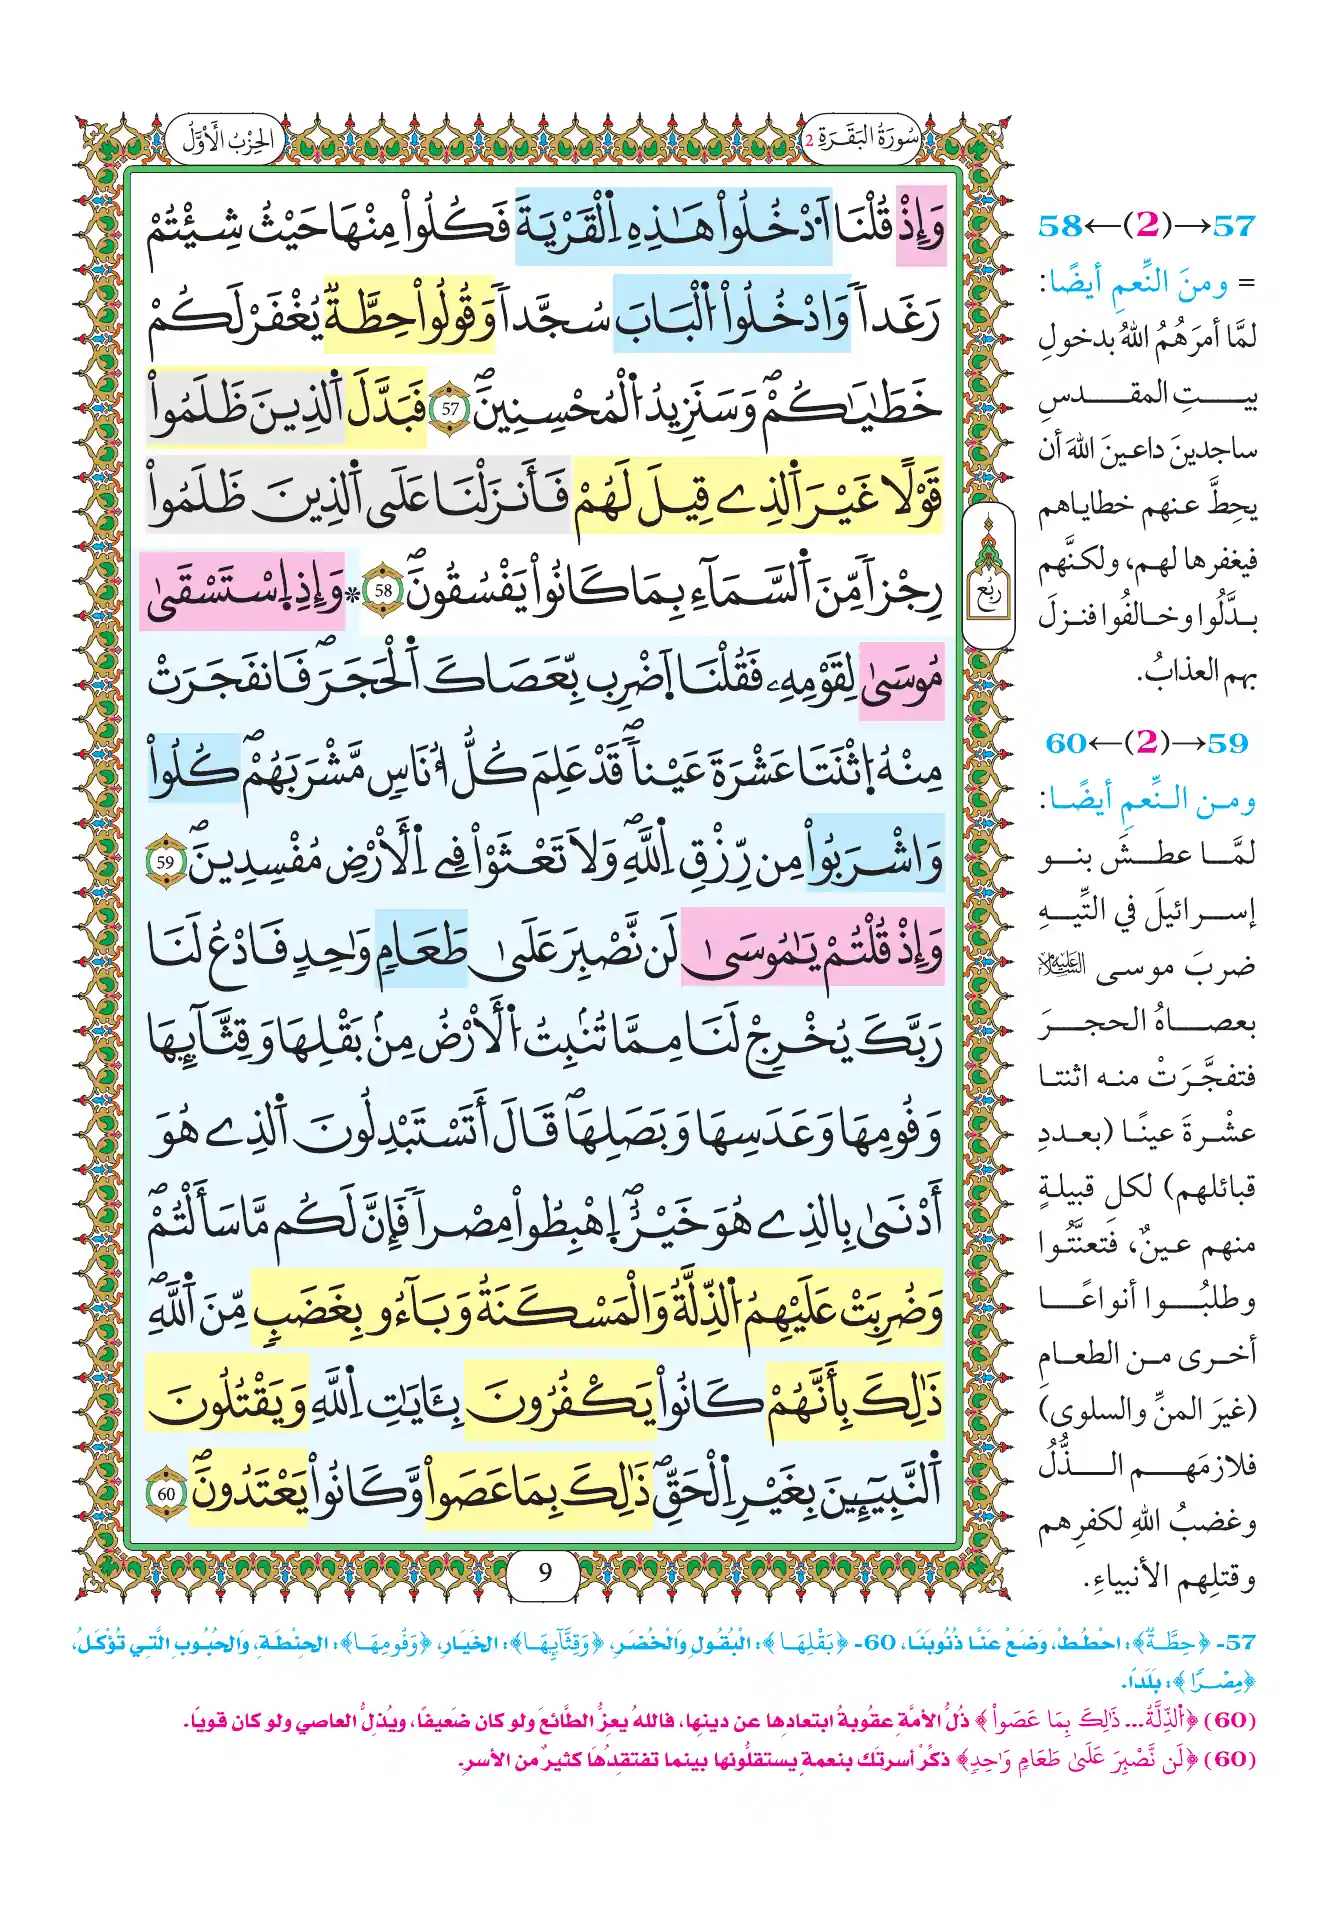 سُورَةُ البَقَرَةِ 2
الحِزْبُ الأَوَّلُ
وَإِذْ قُلْنَا اَدْخُلُواْ هَٰذِهِ اِلْقَرْيَةَ فَكُلُواْ مِنْهَا حَيْثُ شِئْتُمْ
رَغَداٗ وَادْخُلُواْ اُلْبَابَ سُجَّداٗ وَقُولُواْ حِطَّةٞ يُغْفَرْ لَكُمْ
خَطَٰيَٰكُمْۖ وَسَنَزِيدُ اُلْمُحْسِنِينَۖ 57 فَبَدَّلَ اَلذِينَ ظَلَمُواْ
قَوْلًا غَيْرَ اَلذِے قِيلَ لَهُمْ فَأَنزَلْنَا عَلَى اَلذِينَ ظَلَمُواْ
رِجْزاٗ مِّنَ اَلسَّمَآءِ بِمَا كَانُواْ يَفْسُقُونَۖ 58 * وَإِذِ اِسْتَسْقَىٰ
مُوسَىٰ لِقَوْمِهِۦ فَقُلْنَا اَضْرِب بِّعَصَاكَ اَلْحَجَرَۖ فَانفَجَرَتْ
مِنْهُ اُثْنَتَا عَشْرَةَ عَيْناٗۖ قَدْ عَلِمَ كُلُّ أُنَاسٖ مَّشْرَبَهُمْۖ كُلُواْ
وَاشْرَبُواْ مِن رِّزْقِ اِللَّهِۖ وَلَا تَعْثَوْاْ فِے اِلْأَرْضِ مُفْسِدِينَۖ 59
وَإِذْ قُلْتُمْ يَٰمُوسَىٰ لَن نَّصْبِرَ عَلَىٰ طَعَامٖ وَٰحِدٖ فَادْعُ لَنَا
رَبَّكَ يُخْرِجْ لَنَا مِمَّا تُنۢبِتُ اُلْأَرْضُ مِنۢ بَقْلِهَا وَقِثَّآئِهَا
وَفُومِهَا وَعَدَسِهَا وَبَصَلِهَاۖ قَالَ أَتَسْتَبْدِلُونَ اَلذِے هُوَ
أَدْنَىٰ بِالذِے هُوَ خَيْرٌۖ اِهْبِطُواْ مِصْراٗ فَإِنَّ لَكُم مَّا سَأَلْتُمْۖ
وَضُرِبَتْ عَلَيْهِمُ اُلذِّلَّةُ وَالْمَسْكَنَةُ وَبَآءُو بِغَضَبٖ مِّنَ اَللَّهِۖ
ذَٰلِكَ بِأَنَّهُمْ كَانُواْ يَكْفُرُونَ بِـَٔايَٰتِ اِللَّهِ وَيَقْتُلُونَ
اَلنَّبِيٓـِٕينَ بِغَيْرِ اِلْحَقِّۖ ذَٰلِكَ بِمَا عَصَواْ وَّكَانُواْ يَعْتَدُونَۖ 60
رُبُع
9
57→(2)←58
= ومنَ النِّعمِ أيضًا:
لمَّا أمرَهُمُ اللهُ بدخولِ
بيـتِ المقـدسِ
ساجدينَ داعينَ اللهَ أن
يحِطَّ عنهم خطاياهم
فيغفرها لهم، ولكنَّهم
بدَّلُوا وخالفُوا فنزلَ
بهم العذابُ.
59→(2)←60
ومن النِّعمِ أيضًا:
لمَّا عطشَ بنو
إسرائيلَ في التِّيهِ
ضربَ موسى عليه السلام
بعصاهُ الحجرَ
فتفجَّرَتْ منه اثنتا
عشْرةَ عينًا (بعددِ
قبائلهم) لكل قبيلةٍ
منهم عينٌ، فتعنَّتُوا
وطلبُوا أنواعًا
أخرى من الطعامِ
(غيرَ المنِّ والسلوى)
فلازمَهم الذُّلُّ
وغضبُ اللهِ لكفرِهم
وقتلِهم الأنبياءِ.
57- ﴿حِطَّةٌ﴾: احْطُطْ، وَضَعْ عَنَّا ذُنُوبَنَا، 60- ﴿بَقْلِهَا﴾: الْبُقُولِ وَالْخُضَرِ، ﴿وَقِثَّآئِهَا﴾: الخَيَارِ، ﴿وَفُومِهَا﴾: الحِنْطَةِ، وَالحُبُوبِ الَّتِي تُؤْكَلُ،
﴿مِصْرًا﴾: بَلَدًا.
(60) ﴿اُلذِّلَّةُ... ذَٰلِكَ بِمَا عَصَواْ﴾ ذُلُّ الأمَّةِ عقوبةُ ابتعادِها عن دينِها، فاللهُ يعزُّ الطَّائعَ ولو كان ضعيفًا، ويُذلُّ العاصي ولو كان قويًا.
(60) ﴿لَن نَّصْبِرَ عَلَىٰ طَعَامٖ وَٰحِدٖ﴾ ذكِّرْ أسرتَك بنعمةٍ يستقلُّونها بينما تفتقدُها كثيرٌ من الأسرِ.